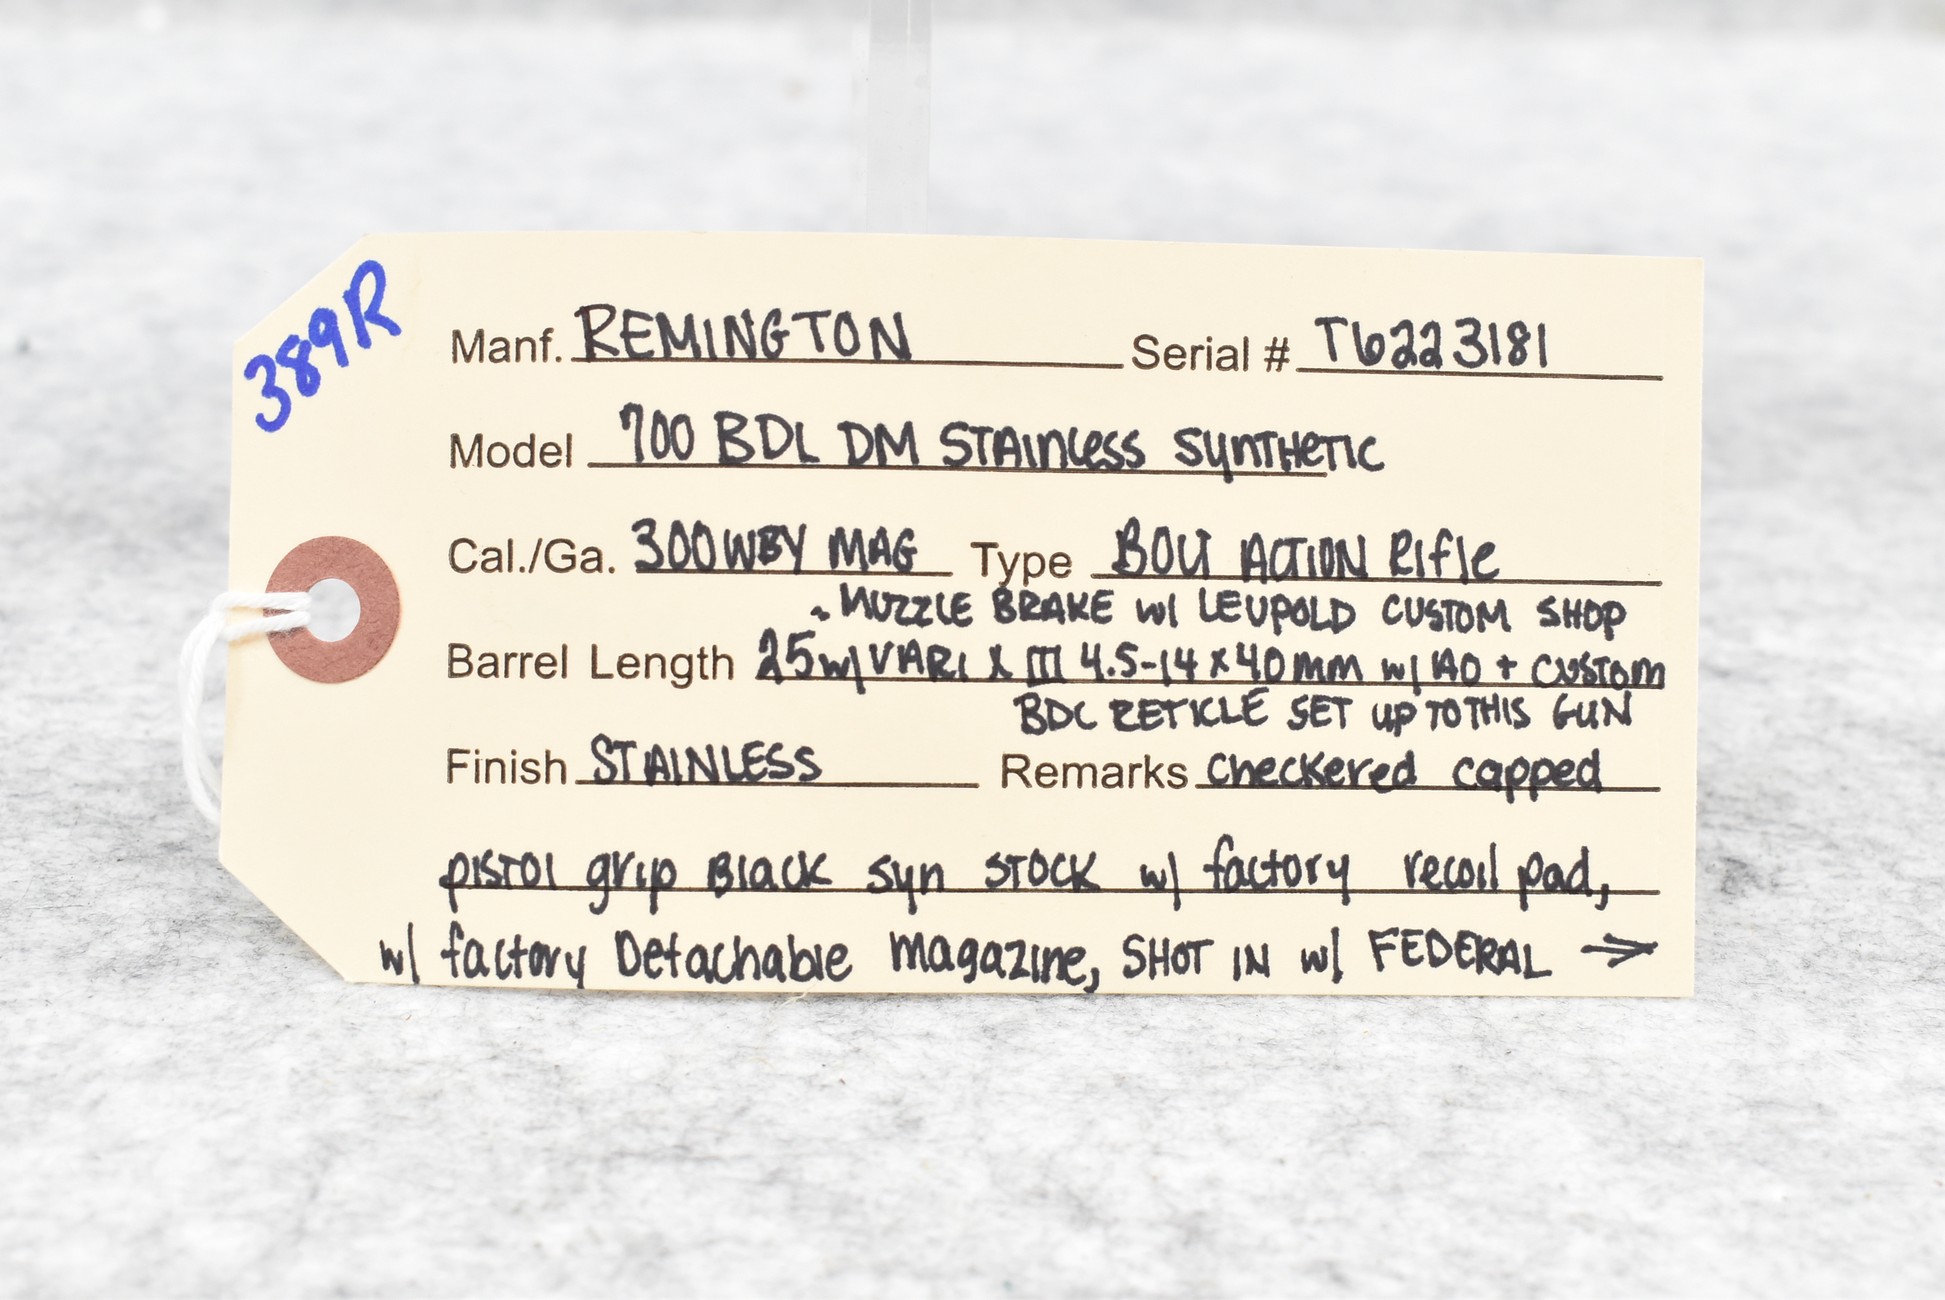 389R
Manf. REMINGTON Serial # T6223181
Model 700 BDL DM STAINLESS SYNTHETIC
Cal./Ga. 300 WBY MAG Type BOLT ACTION Rifle
MUZZLE BRAKE w/ LEUPOLD CUSTOM SHOP
Barrel Length 25 w/ VARI X III 4.5-14 x 40mm w/ AO + CUSTOM
BDC RETICLE SET UP TO THIS GUN
Finish STAINLESS Remarks checkered capped
pistol grip Black syn STOCK w/ factory recoil pad,
w/ factory Detachable magazine, SHOT IN w/ FEDERAL →